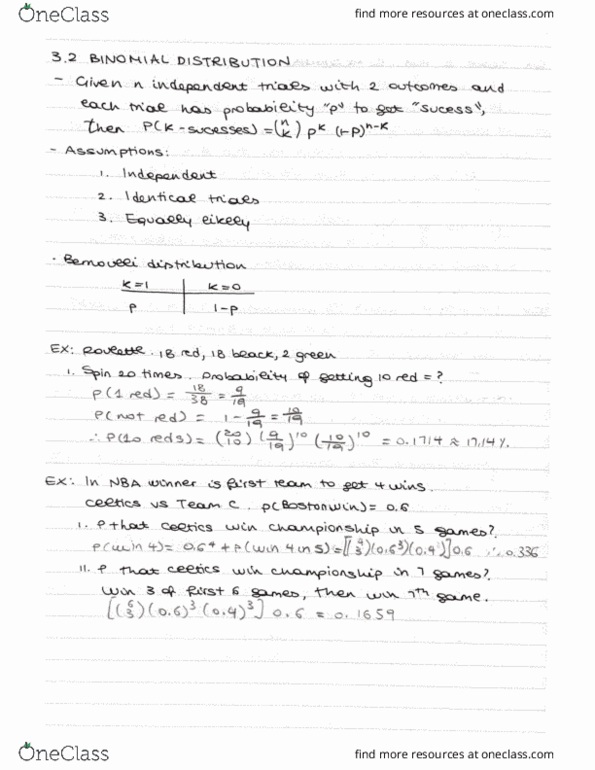 OneClass
find more resources at oneclass.com
3.2 BINOMIAL DISTRIBUTION
- Given n independent trials with 2 outcomes and
each trial has probability "p" to get "sucess",
then P(k-sucesses) = (n k) p^k (1-p)^n-k
- Assumptions:
1. Independent
2. Identical trials
3. Equally likely
· Bernoulli distribution
k=1 k=0
p 1-p
Ex: Roulette. 18 red, 18 black, 2 green
i. Spin 20 times. Probability of getting 10 red = ?
P(1 red) = 18/38 = 9/19
P(not red) = 1 - 9/19 = 10/19
∴ P(10 reds) = (20 10) (9/19)^10 (10/19)^10 = 0.1714 ≈ 17.14%.
Ex: In NBA winner is first team to get 4 wins.
celtics vs Team C. p(Boston win) = 0.6
i. P that celtics win championship in 5 games?
P(win 4) = 0.6^4 + P(win 4 in 5) = [(4 3)(0.6^3)(0.4)] 0.6 ∴ 0.336
ii. P that celtics win championship in 7 games?
Win 3 of first 6 games, then win 7th game.
[(6 3)(0.6)^3 (0.4)^3] 0.6 = 0.1659
OneClass
find more resources at oneclass.com